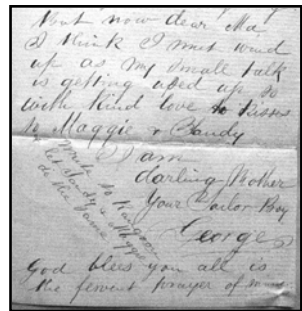 But now dear Ma.
I think I must wind
up as my small talk
is getting used up so
with kind love & kisses
to Maggie & Sandy
I am
darling Mother
Your Sailor Boy
George
write to Rangoon
let Sandy & Maggie
do the same
God bless you all is
the fervent prayer of